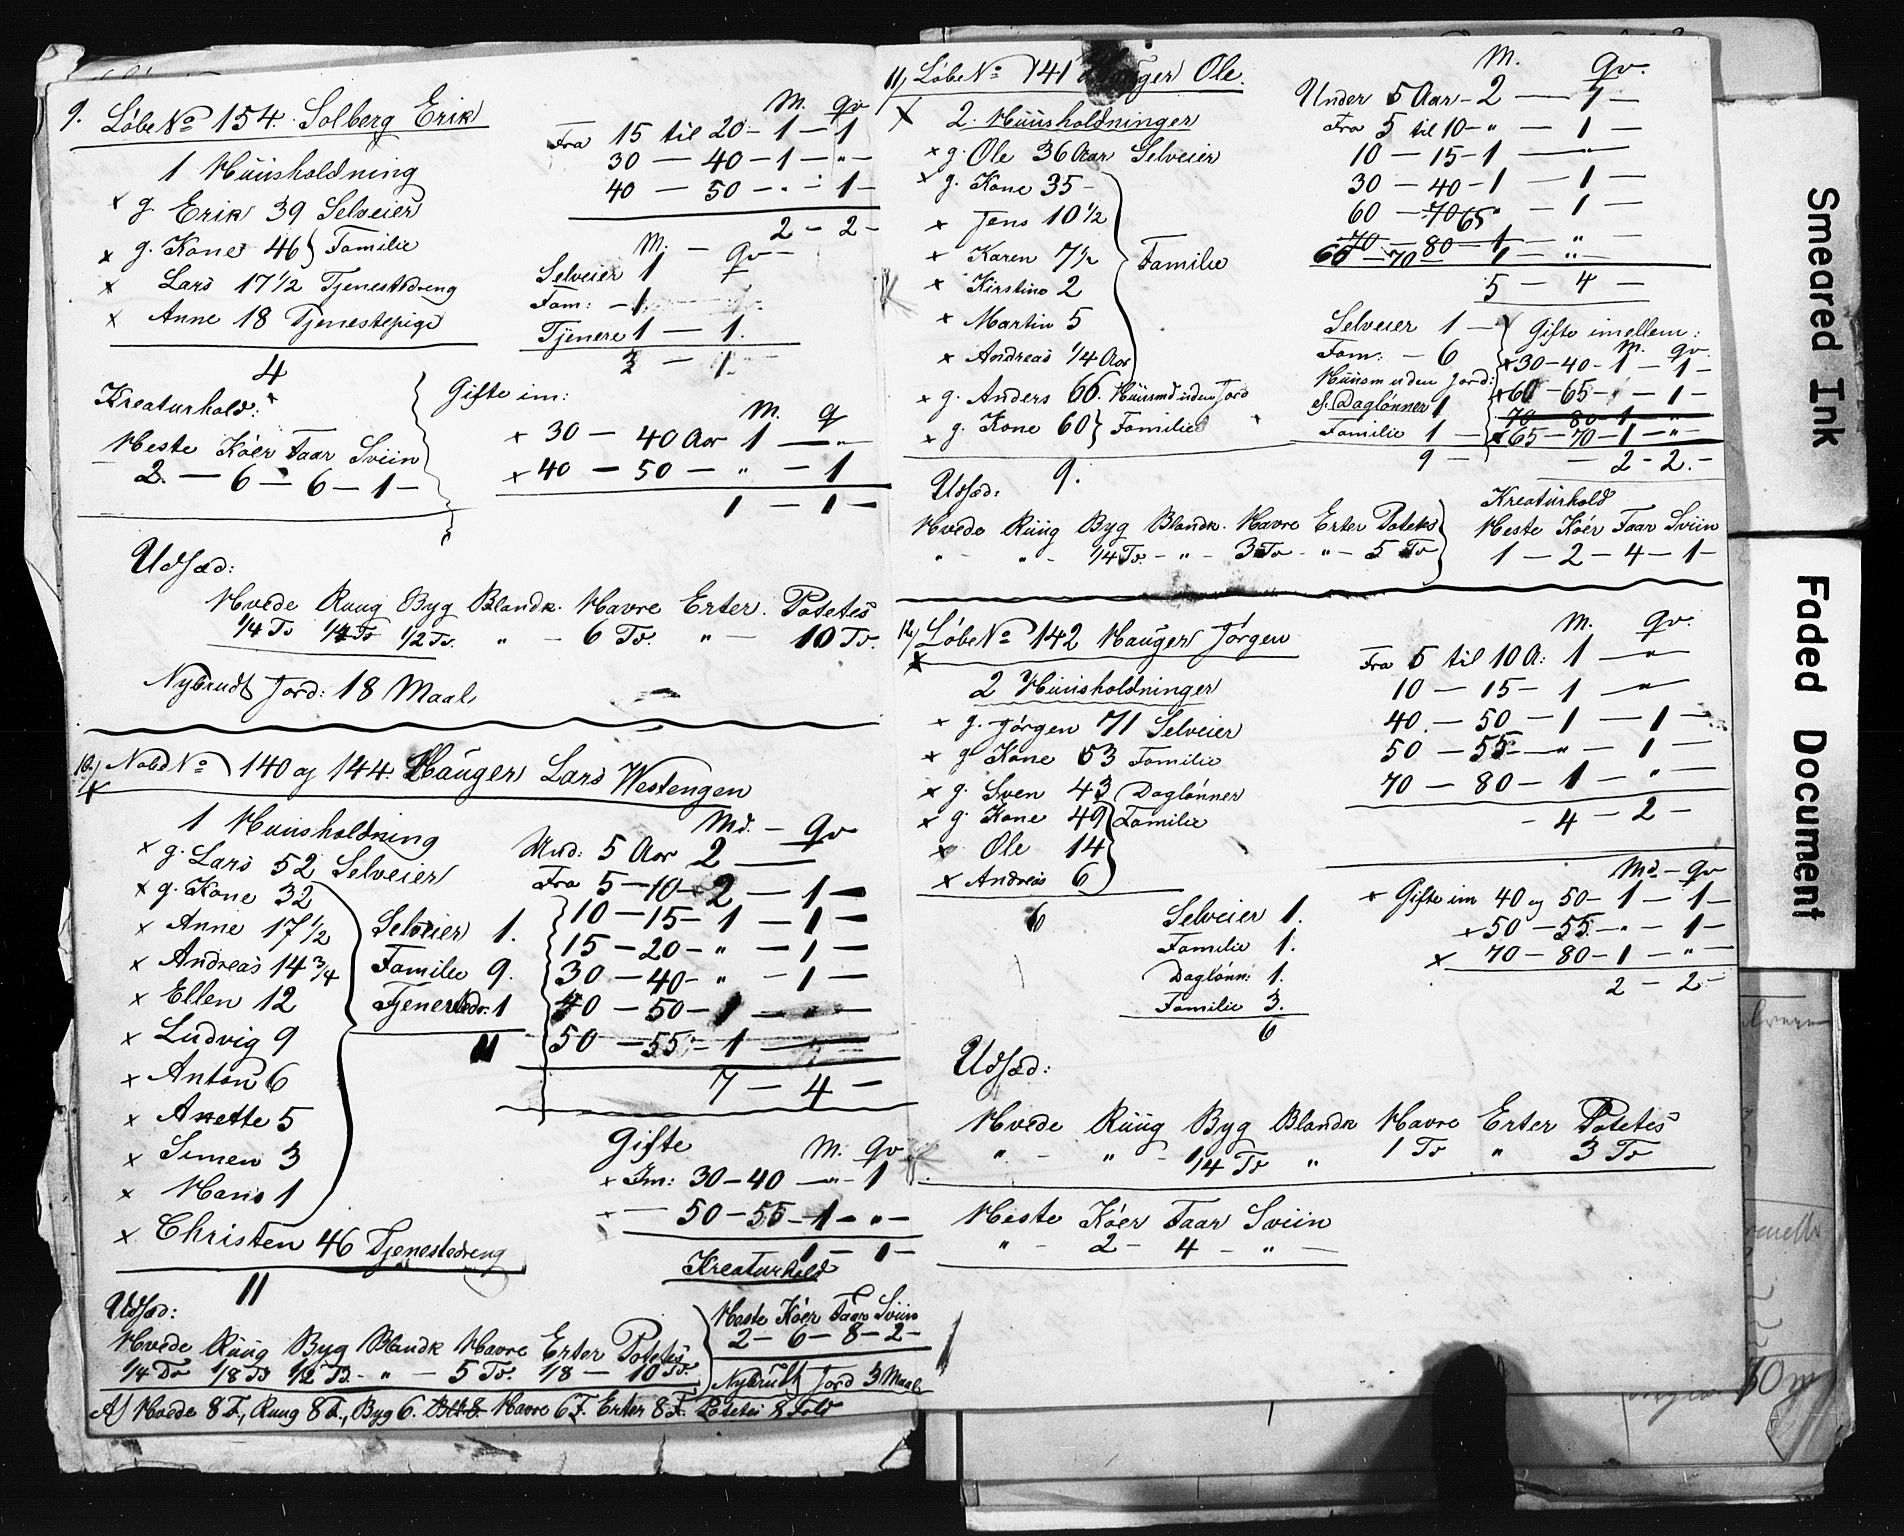 9. Løbe No 154. Solberg Erik
1 Huusholdning
x g. Erik 39 Selveier
x g. Kone 46 } Familie
x Lars 17 1/2 Tjenestedreng
x Anne 18 Tjenestepige
4
M. Qv
Fra 15 til 20 - 1 - 1
30 - 40 - 1 - " -
40 - 50 - " - 1 -
2 - 2 -
M. - Qv -
Selveier 1
Fam: - 1
Tjenere 1 - 1.
3 - 1.
Kreaturhold:
Heste Køer Faar Sviin
2. - 6 - 6 - 1 -
Gifte im:
M. Q
x 30 - 40 Aar 1 - " -
x 40 - 50 - " - 1
1 - 1 -
Udsæd:
Hvede Ruug Byg Blandk. Havre Erter. Potetes
1/4 To 1/4 To 1/2 To. " - 6 To. " - 10 To.
Nybrudt Jord: 18 Maal
10.) Nabd No 140 og 144. Hauger Lars Westengen
x
1 Huusholdning
x g. Lars 52 Selveier
x g. Kone 32
x Anne 17 1/2
x Andreas 14 3/4
x Ellen 12
x Ludvig 9
x Anton 6
x Anette 5
x Simen 3
x Hans 1
x Christen 46 Tjenestedreng
11
Selveier 1.
Familie 9.
Tjenestedr. 1
11
Md. - Qv
Und: 5 Aar 2 -
Fra 5 - 10 - 2 - 1 -
10 - 15 - 1 - 1 -
15 - 20 - " - 1 -
30 - 40 - " - 1 -
40 - 50 - 1 - " -
50 - 55 - 1 -
7 - 4 -
Gifte M. Qv.
x Im: 30 - 40 - " - 1
- 50 - 55 - 1 - " -
1 - 1 -
Kreaturhold
Heste Køer Faar Sviin
2 - 6 - 8 - 2 -
Nybrudt Jord 3 Maal
Udsæd:
Hvede Ruug Byg Blandk Havre Erter Potetes
1/4 To 1/8 To 1/2 To. - " - 5 To. 1/8 - 10 To.
A) Hvede 8 F., Ruug 8 F., Byg 6. Blk 8. Havre 6 F. Erter 8 F. Potetes 8 Fold
11) Løbe No 141 Hauger Ole.
x 2. Huusholdninger
x g. Ole 36 Aar Selveier
x g. Kone 35 -
x Jens 10 1/2
x Karen 7 1/2
x Kirstine 2
x Martin 5
x Andreas 1/4 Aar
Familie
x g. Anders 66. Huusmd uden Jord
x g. Kone 60 } Familie
9.
M. Qv.
Under 5 Aar - 2 - 1 -
Fra 5 til 10 - " - 1 -
10 - 15 - 1 - " -
30 - 40 - 1 - 1 -
60 - 70 65 " - 1 -
70 - 80 - 1 - " -
65 - 70 - 1 - " -
5 - 4 -
Selveier 1 -
Fam: - 6
Huusm uden Jord:
el. Daglønner 1
Familie 1 -
9 -
Gifte imellem:
M. Qv.
x 30 - 40 - 1 - 1 -
x 60 - 65 - " - 1 -
70 - 80 - 1 - " -
x 65 - 70 - 1 - " -
- 2 - 2. -
Udsæd:
Hvede Ruug Byg Blandk. Havre Erter Potetes
" - " - 1/4 To. - " - 3 To - " - 5 To
Kreaturhold
Heste Køer Faar Sviin
1 - 2 - 4 - 1 -
12) Løbe No 142 Hauger Jørgen
x
2 Huusholdninger
x g. Jørgen 71 Selveier
x g. Kone 53 Familie
x g. Sven 43 Daglønner
x g. Kone 49 } Familie
x Ole 14
x Andreas 6
6
M. Qv.
Fra 5 til 10 A: 1 - " -
10 - 15 - 1 - " -
40 - 50 - 1 - 1 -
50 - 55 - " - 1 -
70 - 80 - 1 - " -
- 4 - 2 -
Selveier 1.
Familie 1.
Daglønn: 1.
Familie 3.
6
Md. - Qv
x Gifte im 40 og 50 - 1 - 1 -
x 50 - 55. - " - 1 -
x 70 - 80 - 1 - " -
2 - 2 -
Udsæd:
Hvede Ruug Byg Blandk Havre Erter Potetes
" - " - 1/4 To " 1 To " 3 To
Heste Køer Faar Sviin
" - 2 - 4 - " -
Smeared Ink
Faded Document